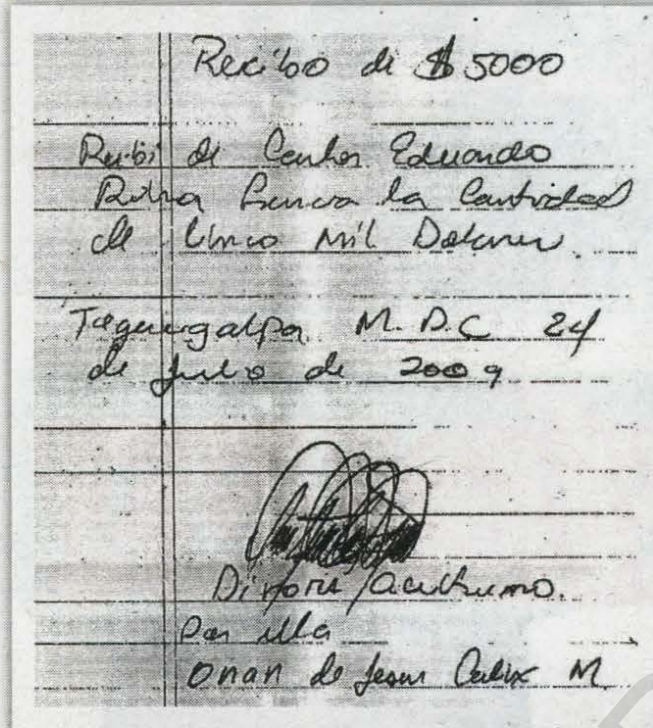 Recibo de $ 5000
Recibi de Carlos Eduardo
Reina la Cantidad
de Cinco Mil Dolares.
Tegucigalpa M.D.C 24
de Julio de 2009
Por ella
Onan de Jesus Calix M